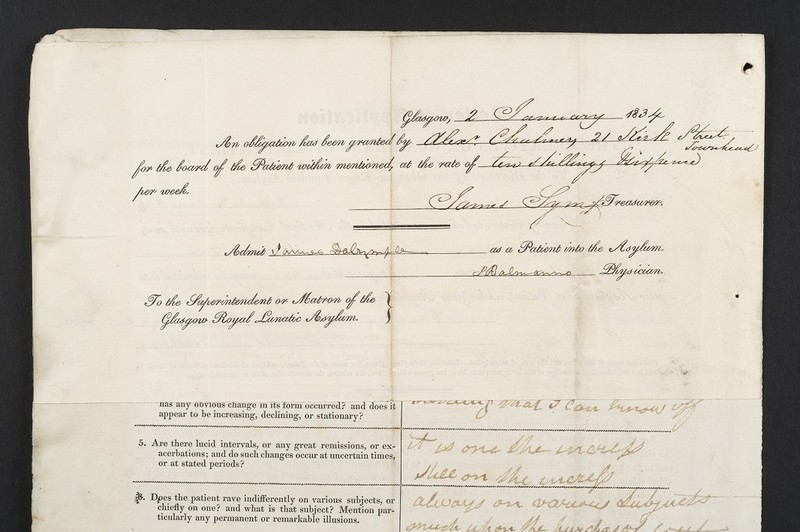 Glasgow, 2 January 1834
An obligation has been granted by Alexr. Chalmers 21 Kirk Street Townhead
for the board of the Patient within mentioned, at the rate of ten shillings & sixpence
per week.
James Symes Treasurer.
Admit James Dalrymple as a Patient into the Asylum.
Balmanno Physician.
To the Superintendent or Matron of the
Glasgow Royal Lunatic Asylum.
has any obvious change in its form occurred? and does it
appear to be increasing, declining, or stationary?
that I can know off
5. Are there lucid intervals, or any great remissions, or ex-
acerbations; and do such changes occur at uncertain times,
or at stated periods?
it is one the incress
still on the incress
6. Does the patient rave indifferently on various subjects, or
chiefly on one? and what is that subject? Mention par-
ticularly any permanent or remarkable illusions.
always on various subjects
much upon the purchas of